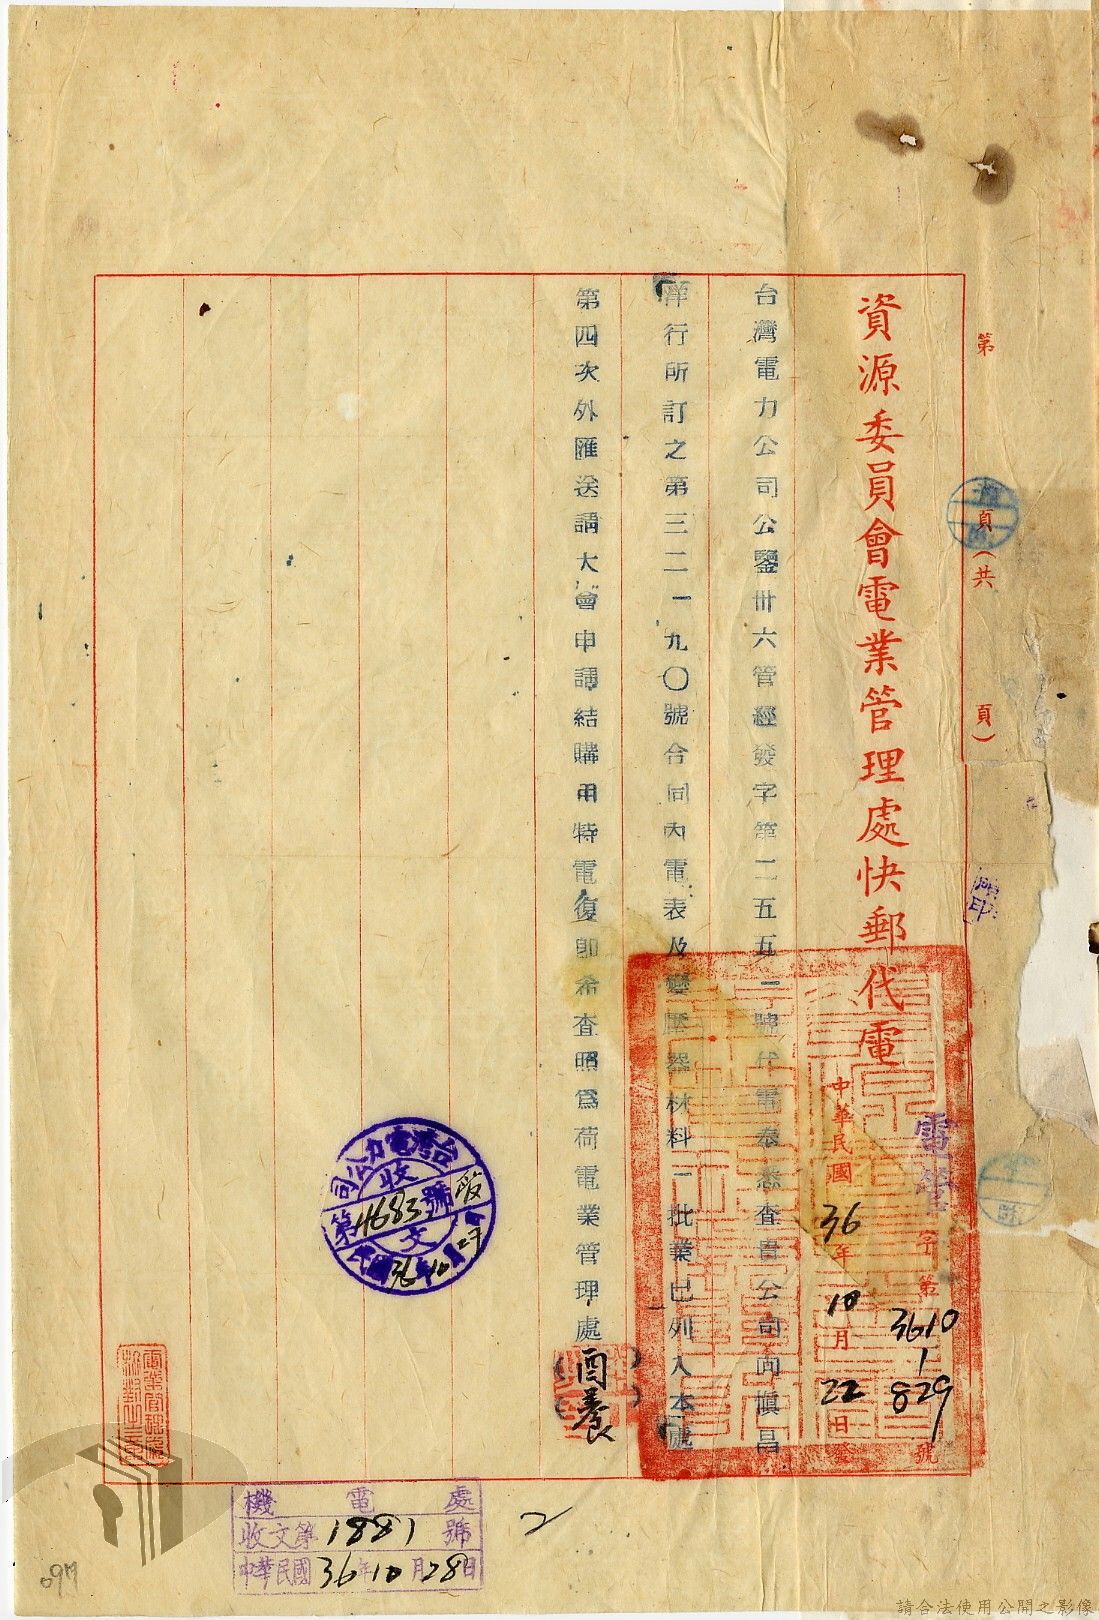 第　頁（共　頁）
資源委員會電業管理處快郵代電
電業字第3610 1829號
中華民國36年10月22日發
台灣電力公司公鑒卅六管經發字第二五五一號代電奉悉查貴公司向慎昌
洋行所訂之第三二一九〇號合同內電表及變壓器材料一批業已列入本處
第四次外匯送請大會申請結購用特電復即希查照為荷電業管理處（酉養）
台灣電力公司
收文
第4683號
民國36年10月27日
機電處
收文第1881號
中華民國36年10月28日
2
097
請合法使用公開之影像